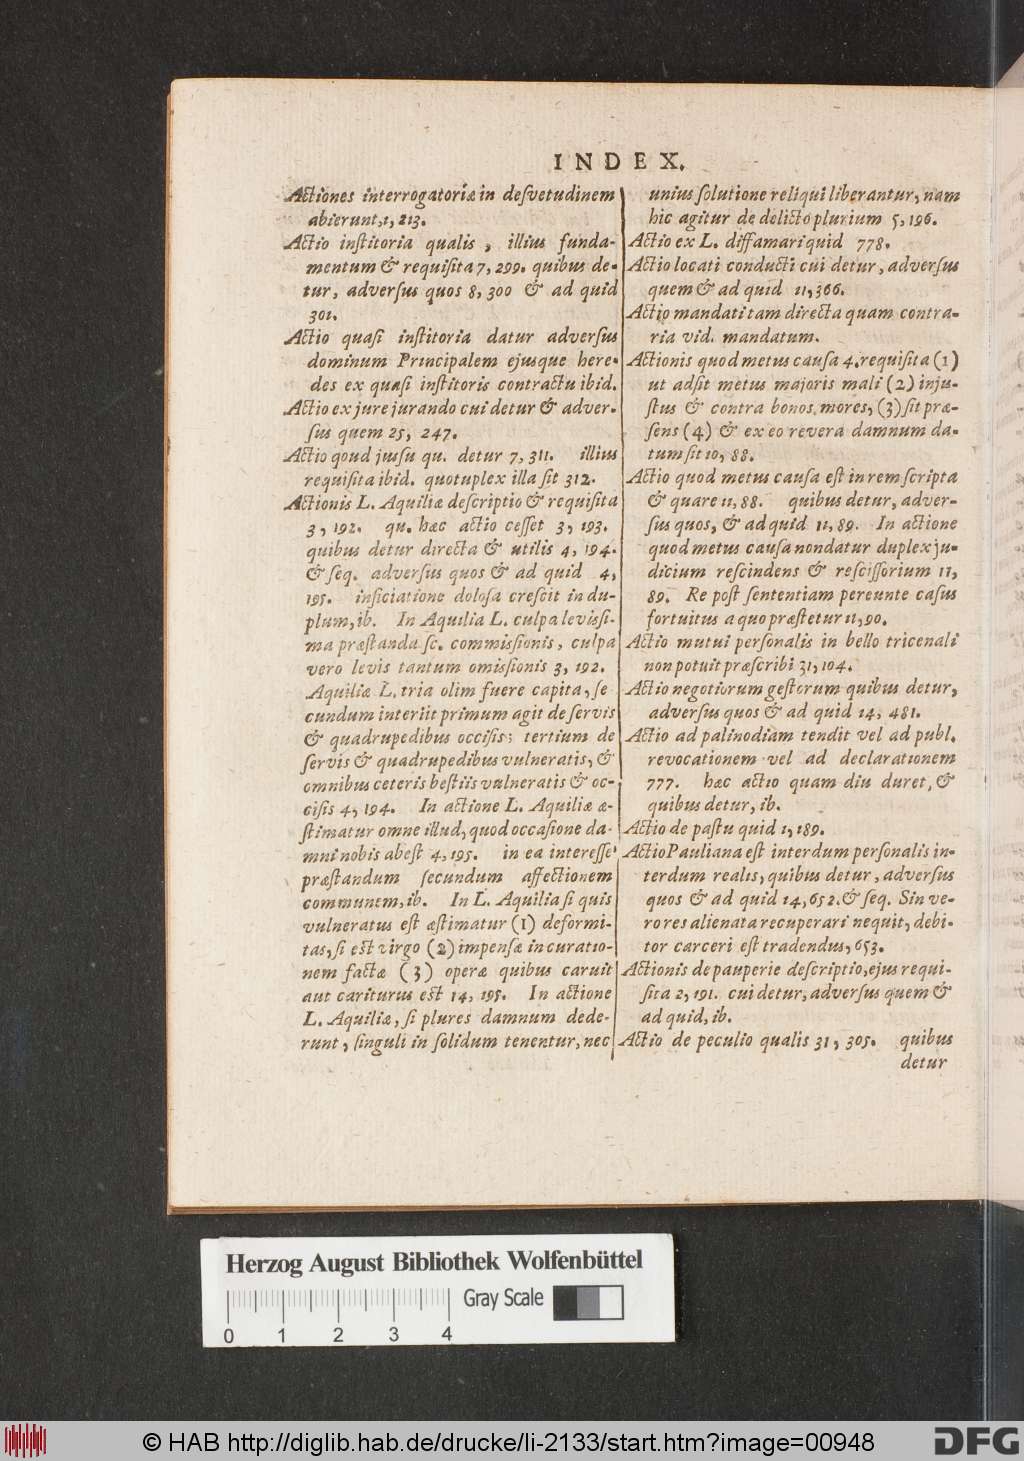 INDEX.
Actiones interrogatoriæ in desvetudinem
abierunt, 1, 213.
Actio inſtitoria qualis, illius funda-
mentum & requiſita 7, 299. quibus de-
tur, adverſus quos 8, 300 & ad quid
301.
Actio quaſi inſtitoria datur adverſus
dominum Principalem ejusque here-
des ex quaſi inſtitoris contractu ibid.
Actio ex jure jurando cui detur & adver-
ſus quem 25, 247.
Actio qoud juſſu qu. detur 7, 311. illius
requiſita ibid. quotuplex illa ſit 312.
Actionis L. Aquiliæ deſcriptio & requiſita
3, 192. qu. hæc actio ceſſet 3, 193.
quibus detur directa & utilis 4, 194.
& ſeq. adverſus quos & ad quid 4,
195. inficiatione doloſa creſcit in du-
plum, ib. In Aquilia L. culpa leviſſi-
ma præſtanda ſc. commiſſionis, culpa
vero levis tantum omiſſionis 3, 192.
Aquiliæ L. tria olim fuere capita, ſe
cundum interiit primum agit de ſervis
& quadrupedibus occiſis; tertium de
ſervis & quadrupedibus vulneratis, &
omnibus ceteris beſtiis vulneratis & oc-
ciſis 4, 194. In actione L. Aquiliæ æ-
ſtimatur omne illud, quod occaſione da-
mni nobis abeſt 4, 195. in ea intereſſe
præſtandum ſecundum affectionem
communem, ib. In L. Aquilia ſi quis
vulneratus eſt æſtimatur (1) deformi-
tas, ſi eſt virgo (2) impenſæ in curatio-
nem factæ (3) operæ quibus caruit
aut cariturus eſt 14, 195. In actione
L. Aquiliæ, ſi plures damnum dede-
runt, ſinguli in ſolidum tenentur, nec
unius ſolutione reliqui liberantur, nam
hic agitur de delicto plurium 5, 196.
Actio ex L. diffamari quid 778.
Actio locati conducti cui detur, adverſus
quem & ad quid 11, 366.
Actio mandati tam directa quam contra-
ria vid. mandatum.
Actionis quod metus cauſa 4. requiſita (1)
ut adſit metus majoris mali (2) inju-
ſtus & contra bonos mores, (3) ſit præ-
ſens (4) & ex eo revera damnum da-
tum ſit 10, 88.
Actio quod metus cauſa eſt in rem ſcripta
& quare 11, 88. quibus detur, adver-
ſus quos, & ad quid 11, 89. In actione
quod metus cauſa non datur duplex ju-
dicium reſcindens & reſciſſorium 11,
89. Re poſt ſententiam pereunte caſus
fortuitus a quo præſtetur 11, 90.
Actio mutui perſonalis in bello tricenali
non potuit præſcribi 31, 104.
Actio negotiorum geſtorum quibus detur,
adverſus quos & ad quid 14, 481.
Actio ad palinodiam tendit vel ad publ.
revocationem vel ad declarationem
777. hæc actio quam diu duret, &
quibus detur, ib.
Actio de paſtu quid 1, 189.
Actio Pauliana eſt interdum perſonalis in-
terdum realis, quibus detur, adverſus
quos & ad quid 14, 652. & ſeq. Sin ve-
ro res alienata recuperari nequit, debi-
tor carceri eſt tradendus, 653.
Actionis de pauperie deſcriptio, ejus requi-
ſita 2, 191. cui detur, adverſus quem &
ad quid, ib.
Actio de peculio qualis 31, 305. quibus
detur
Herzog August Bibliothek Wolfenbüttel
Gray Scale
0 1 2 3 4
© HAB http://diglib.hab.de/drucke/li-2133/start.htm?image=00948
DFG